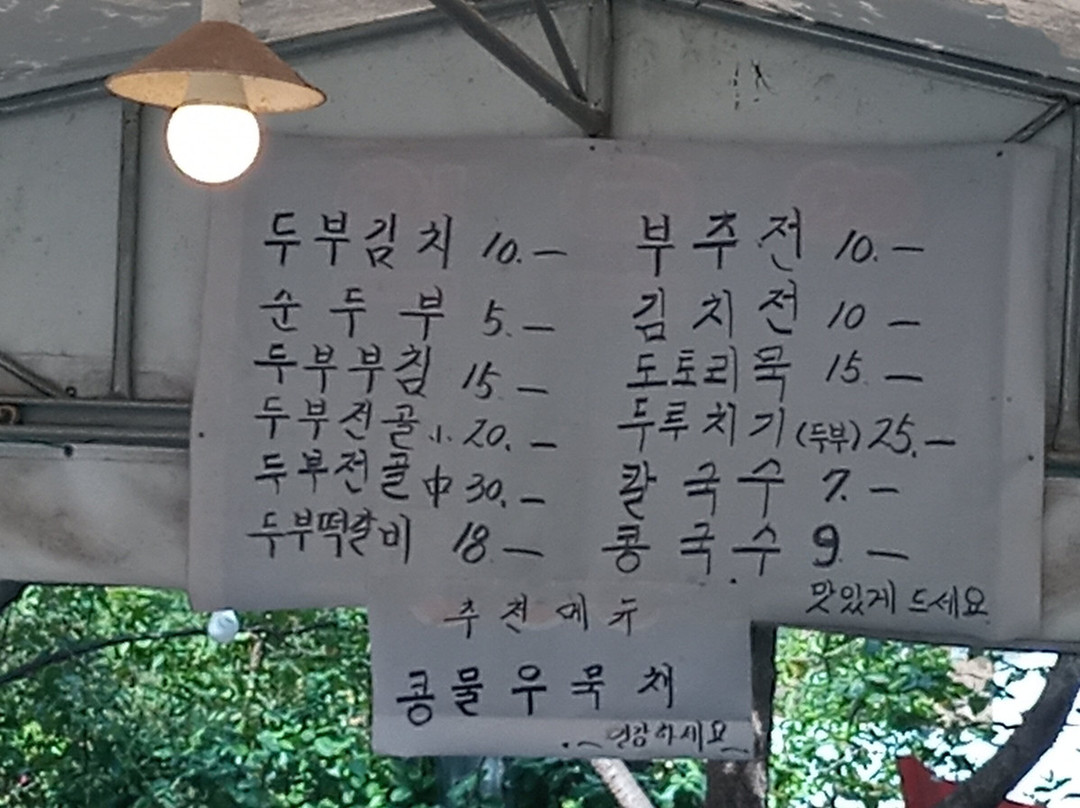 두부김치 10.—
순두부 5.—
두부부침 15.—
두부전골 小. 20.—
두부전골 中 30.—
두부떡갈비 18—
부추전 10.—
김치전 10—
도토리묵 15.—
두루치기(두부) 25.—
칼국수 7.—
콩국수 9—
맛있게 드세요
추천메뉴
콩물우묵채
건강하세요